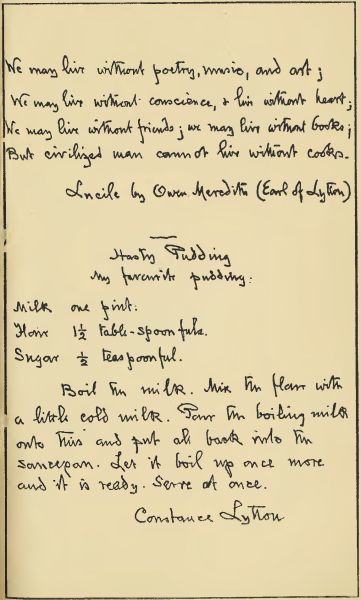 We may live without poetry, music, and art;
We may live without conscience, & live without heart;
We may live without friends; we may live without books;
But civilized man cannot live without cooks.
Lucile by Owen Meredith (Earl of Lytton)
Hasty Pudding
My favourite pudding:
Milk one pint.
Flour 1½ table-spoonfuls.
Sugar ½ teaspoonful.
Boil the milk. Mix the flour with
a little cold milk. Pour the boiling milk
onto this and put all back into the
saucepan. Let it boil up once more
and it is ready. Serve at once.
Constance Lytton